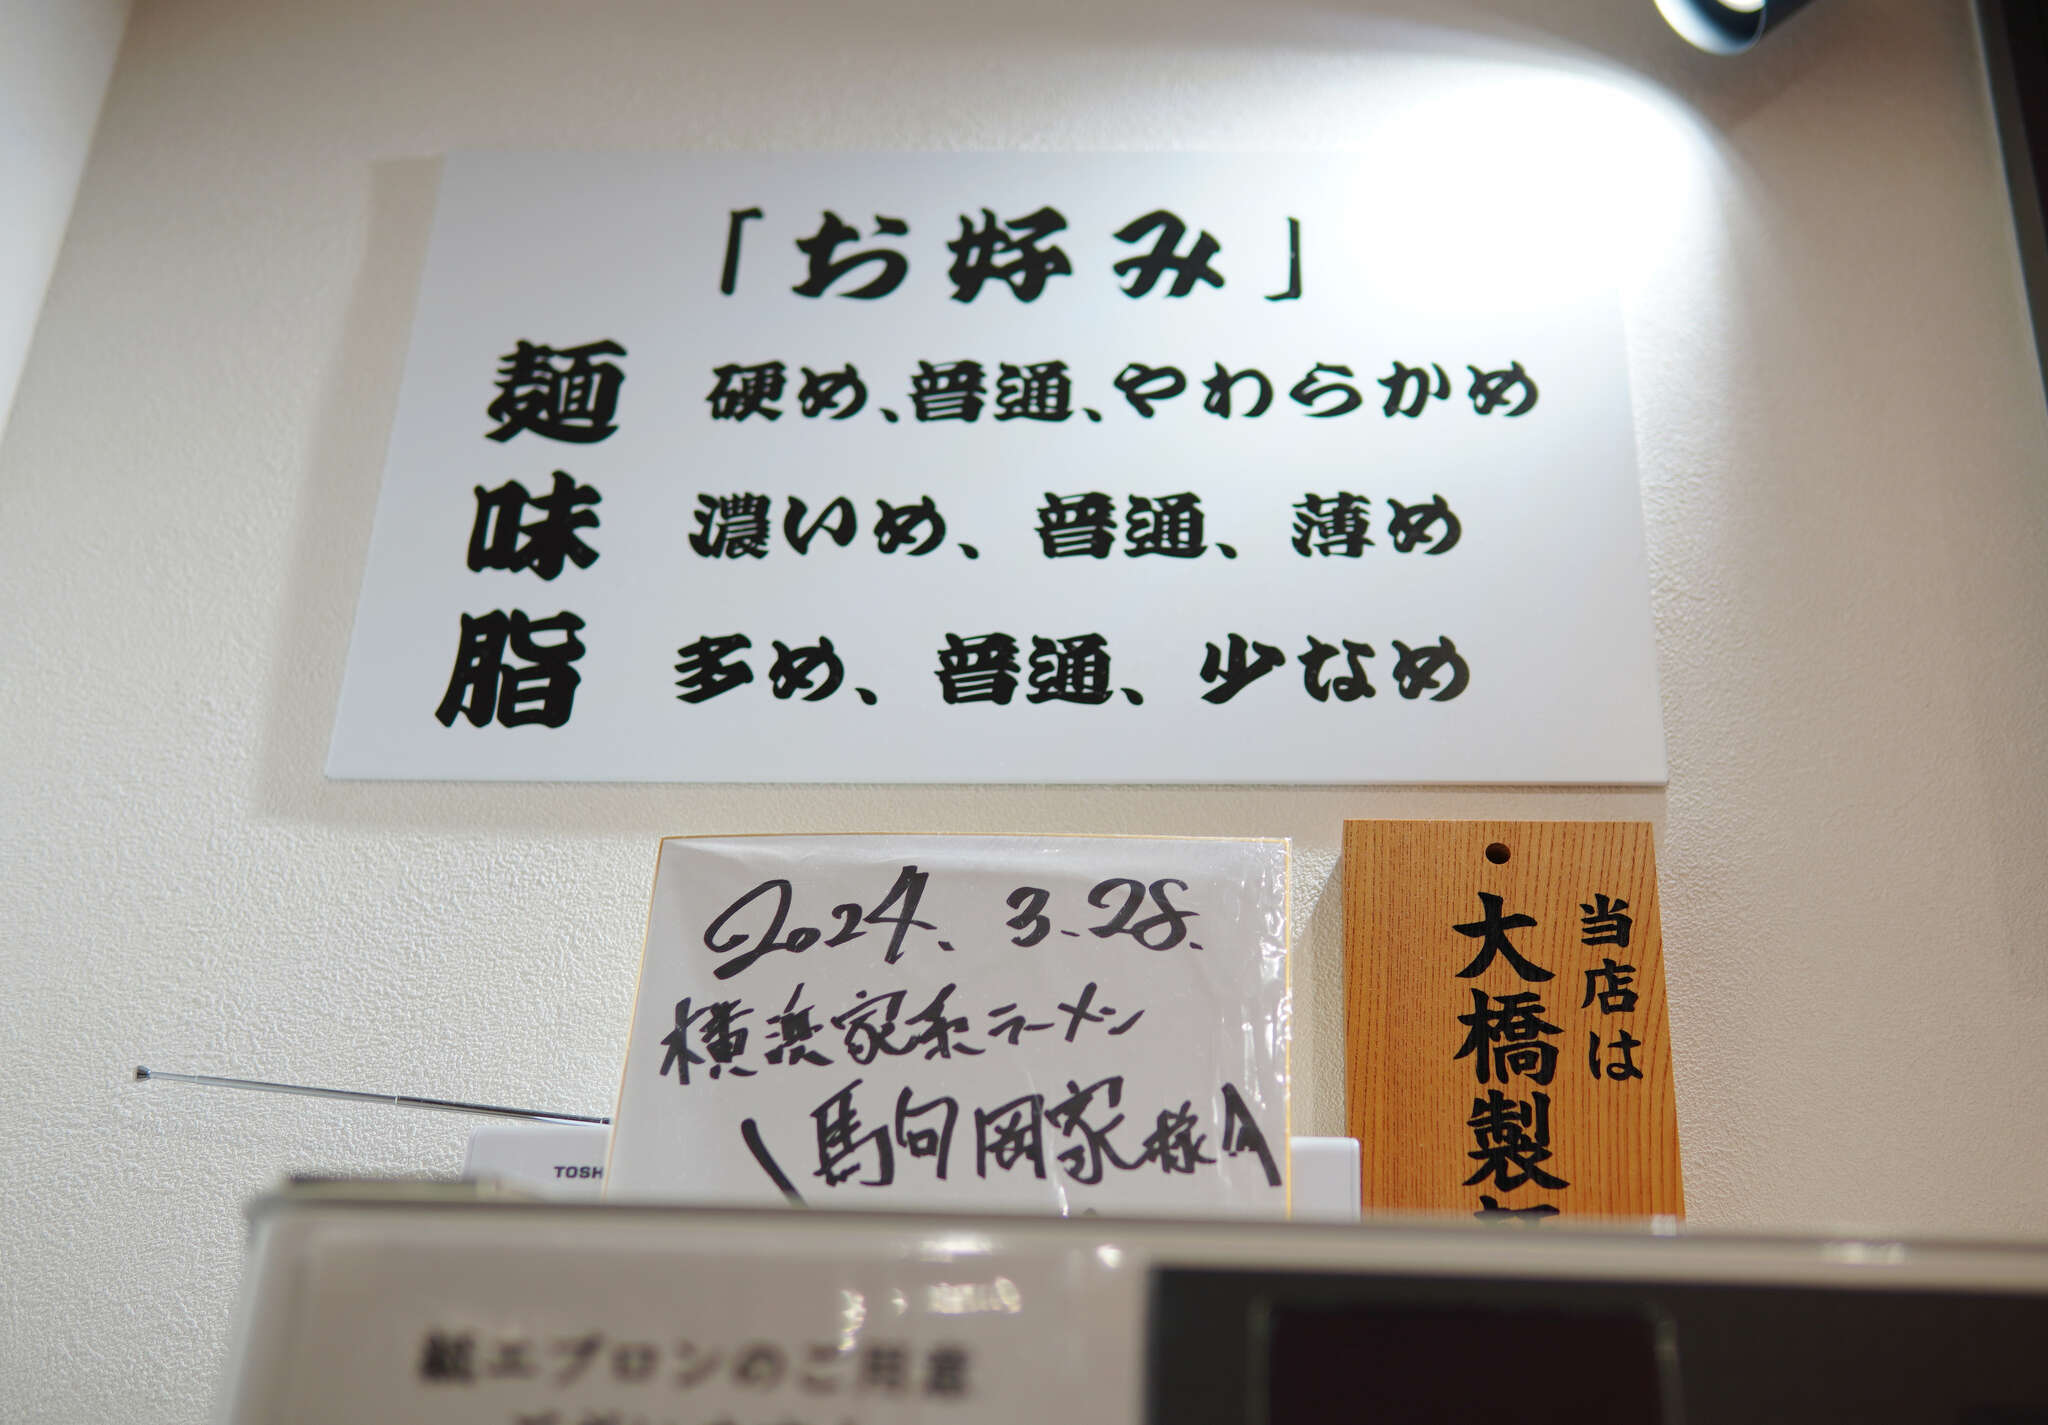 「お好み」
麺 硬め、普通、やわらかめ
味 濃いめ、普通、薄め
脂 多め、普通、少なめ
2024. 3.28.
横浜家系ラーメン
馬句岡家様
当店は
大橋製
TOSH
紙エプロンのご用意